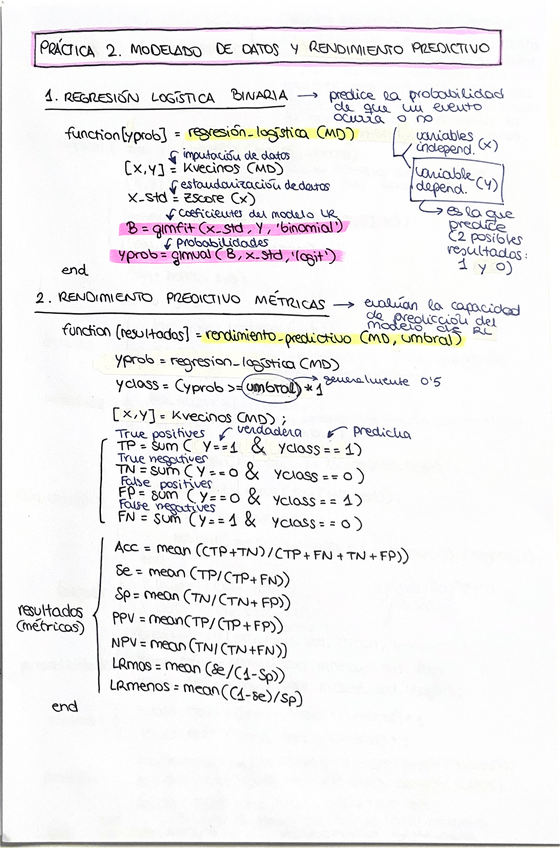 PRÁCTICA 2. MODELADO DE DATOS Y RENDIMIENTO PREDICTIVO
1. REGRESIÓN LOGÍSTICA BINARIA → predice la probabilidad
de que un evento
ocurra o no
variables
independ. (x)
variable
depend. (Y)
es la que
predice
(2 posibles
resultados:
1 y 0)
function [yprob] = regresión_logística (MD)
imputación de datos
[X,Y] = Kvecinos (MD)
estandarización de datos
X_std = zscore (x)
coeficientes del modelo LR
B = glmfit (x_std, Y, 'binomial')
probabilidades
yprob = glmval (B, x_std, 'logit')
end
2. RENDIMIENTO PREDICTIVO MÉTRICAS → evalúan la capacidad
de predicción del
modelo de RL
function [resultados] = rendimiento_predictivo (MD, umbral)
yprob = regresion_logística (MD)
yclass = (yprob >= umbral) * 1 → generalmente 0'5
[X,Y] = Kvecinos (MD) ;
True positives verdadera predicha
TP = sum ( Y==1 & yclass == 1)
True negatives
TN = sum ( Y==0 & yclass == 0)
False positives
FP = sum ( Y==0 & yclass == 1)
False negatives
FN = sum ( Y==1 & yclass == 0)
resultados
(métricas)
Acc = mean ((TP+TN)/(TP+FN+TN+FP))
Se = mean (TP/(TP+FN))
Sp = mean (TN/(TN+FP))
PPV = mean(TP/(TP+FP))
NPV = mean (TN/(TN+FN))
LRmas = mean (Se/(1-Sp))
LRmenos = mean((1-Se)/Sp)
end